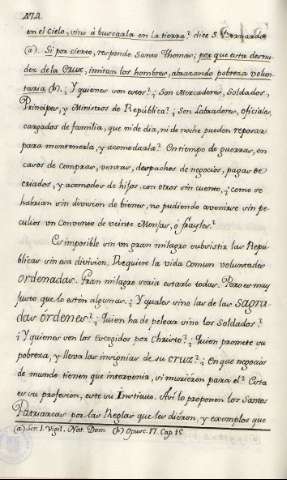 en el Cielo, vino à buscarla en la tierra? dice S. Bernardo
(a). Si por cierto, responde Santo Thomàs; por que esta desnu-
dez de la Cruz, imitan los hombres, abrazando pobreza volun-
taria (b). ¿Y quienes son estos? ¿Son Mercaderes, Soldados,
Principes, y Ministros de República? ¿son Labradores, oficiales,
cargados de familia, que ni de dia, ni de noche pueden reposar
para mantenerla, y acomodarla? En tiempo de guerras, en
casos de compras, ventas, despachos de negocios, pagas de
criados, y acomodos de hijos, con otros sin cuento, ¿como se
habrian sin division de bienes, no pudiendo avenirse sin pe-
culios un Convento de veinte Monjas, ò frayles?
Es imposible sin un gran milagro subsistir las Repú-
blicas sin esa division. Requiere la vida comun voluntades
ordenadas. Gran milagro seria estarlo todas. Pero es muy
justo que lo estèn algunas. ¿Y quales sino las de las sagra-
das órdenes? ¿Quien ha de pelear sino los Soldados?
¿Y quienes son los escogidos por Christo? ¿Quien promete su
pobreza, y lleva las insignias de su cruz? ¿En que negocios
de mundo tienen que intervenir, si murieron para el? Esta
es su profesion, este su Instituto. Asi lo proponen los Santos
Patriarcas por las Reglas que les dieron, y exemplos que
(a) Ser. 1. Vigil. Nat. Dom. (b) Opusc. 17. Cap. 15.